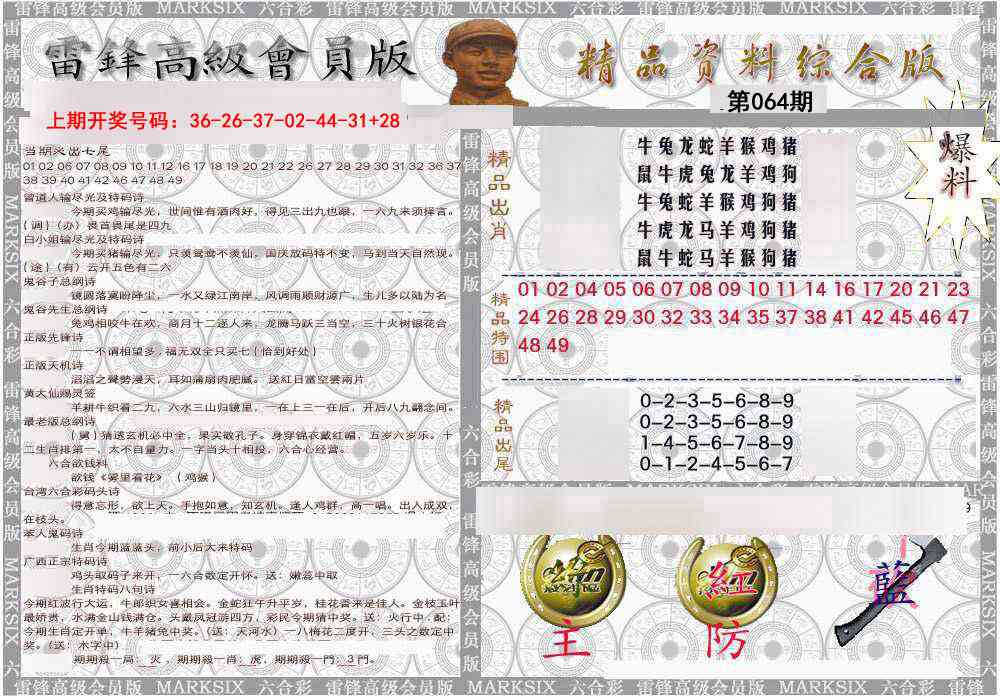 雷锋高级会员版 MARKSIX 六合彩 雷锋高级会员版 MARKSIX 六合彩 雷锋高级会员版
雷鋒高級會員版
精品资料综合版
第064期
上期开奖号码：36-26-37-02-44-31+28
爆料
01 02 06 07 08 09 10 11 12 16 17 18 19 20 21 22 26 27 28 29 30 31 32 36 37
38 39 40 41 42 46 47 48 49
曾道人输尽光及特码诗
今期买鸡输尽光，世间惟有酒肉好，得见三出九也跟，一六九来须择言。
(调)(办) 畏首畏尾是四九
白小姐输尽光及特码诗
今期买猪输尽光，只羡鸳鸯不羡仙，国庆放码特不变，马到当天自然现。
(途)(有) 云开五色有二六
鬼谷子总纲诗
镜圆落寞盼降尘，一水又绿江南岸，风调雨顺财源广，生儿多以陆为名
鬼谷先生总纲诗
兔鸡相咬牛在欢，商月十二逐人来，龙腾马跃三当空，三十火树银花合
正版先锋诗
——不谓相望多，福无双全只买七(恰到好处)
正版天机诗
滔滔之聲勢漫天，耳如蒲扇肉肥膩。 送紅日富空雲兩片
黄大仙赐灵签
羊耕牛织看二九，六水三山归镜里，一在上三一在后，开后八九翻念间。
最老版总纲诗
(舅) 猜透玄机必中全，果买敬孔子。身穿锦衣戴红帽，五岁六岁乐。十
二生肖排第一，太不自量力。一字当头十相投，六合心经营。
六合欲钱料
欲钱《雾里看花》 (鸡猴)
台湾六合彩码头诗
得意忘形，欲上天。手抱如意，知玄机。逢人鸡群，高一唱。出入成双，
在枝头。
本人鬼码诗
生肖今期蓝蓝头，前小后大来特码
广西正宗特码诗
鸡头取码子来开，一六合数定开怀。送：嫩蕊中取
生肖特码八句诗
今期红波行大运，牛郎织女喜相会。金蛇狂午升平岁，桂花香来是佳人。金枝玉叶
最娇贵，水满金山钱满仓。头戴凤冠游四方，彩民今期猜中奖。送：火行中.配：
今期生肖定开单，牛羊猪兔中奖。(送：天河水) 一八梅花二度开，三头之数定中
奖。(送：木字中)
期期殺一局：火，期期殺一肖：虎，期期殺一門：3門。
精品出肖
牛兔龙蛇羊猴鸡猪
鼠牛虎兔龙羊鸡狗
牛兔蛇羊猴鸡狗猪
牛虎龙马羊鸡狗猪
鼠牛蛇马羊猴狗猪
精品特围
01 02 04 05 06 07 08 09 10 11 14 16 17 20 21 23
24 26 28 29 30 32 33 34 35 37 38 41 42 45 46 47
48 49
精品出尾
0-2-3-5-6-8-9
0-2-3-5-6-8-9
1-4-5-6-7-8-9
0-1-2-4-5-6-7
紅
藍
主
防
雷锋高级会员版 MARKSIX 六合彩 雷锋高级会员版 MARKSIX 六合彩 雷锋高级会员版